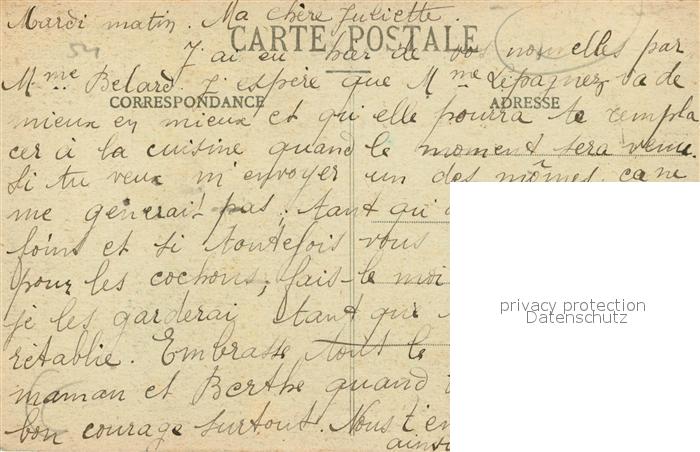 Mardi matin. Ma chère Juliette.
CARTE POSTALE
J'ai eu hier de vos nouvelles par
Mme Belard. J'espère que Mme Lepagnez va de
CORRESPONDANCE ADRESSE
mieux en mieux et qu'elle pourra te rempla
cer à la cuisine quand le moment sera venu.
Si tu veux m'envoyer un des mômes ça ne
me gênerait pas, tant qu'
foins et si toutefois vous
pour les cochons, fais-le moi
je les garderai tant que
rétablie. Embrasse tout le
maman et Berthe quand
bon courage surtout. Nous t'em
ains
privacy protection
Datenschutz